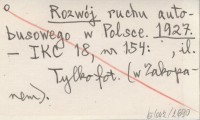 Rozwój ruchu auto-
busowego w Polsce. 1927.
— IKC 18, nr 154: , il.
Tylko fot. (w Zakopa-
nem).